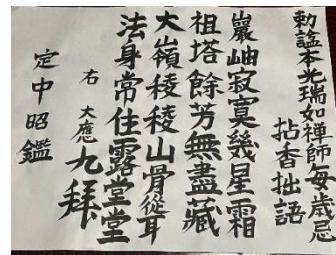 勅諡本光瑞如禅師毎歳忌
拈香拙語
巖岫寂寞幾星霜
祖塔餘芳無盡藏
大嶺稜稜山骨從耳
法身常住露堂堂
右 大應九拜
定中昭鑑